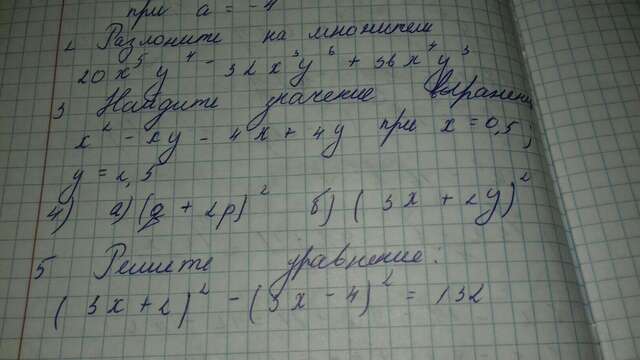 при a = -4
2 Разложите на множители
20x⁵y⁴ - 32x³y⁶ + 36x⁴y³
3 Найдите значение выражения
x² - xy - 4x + 4y при x = 0,5;
y = 2,5
4) а) (q + 2p)² б) (3x + 2y)²
5 Решите уравнение:
(3x + 2)² - (3x - 4)² = 132